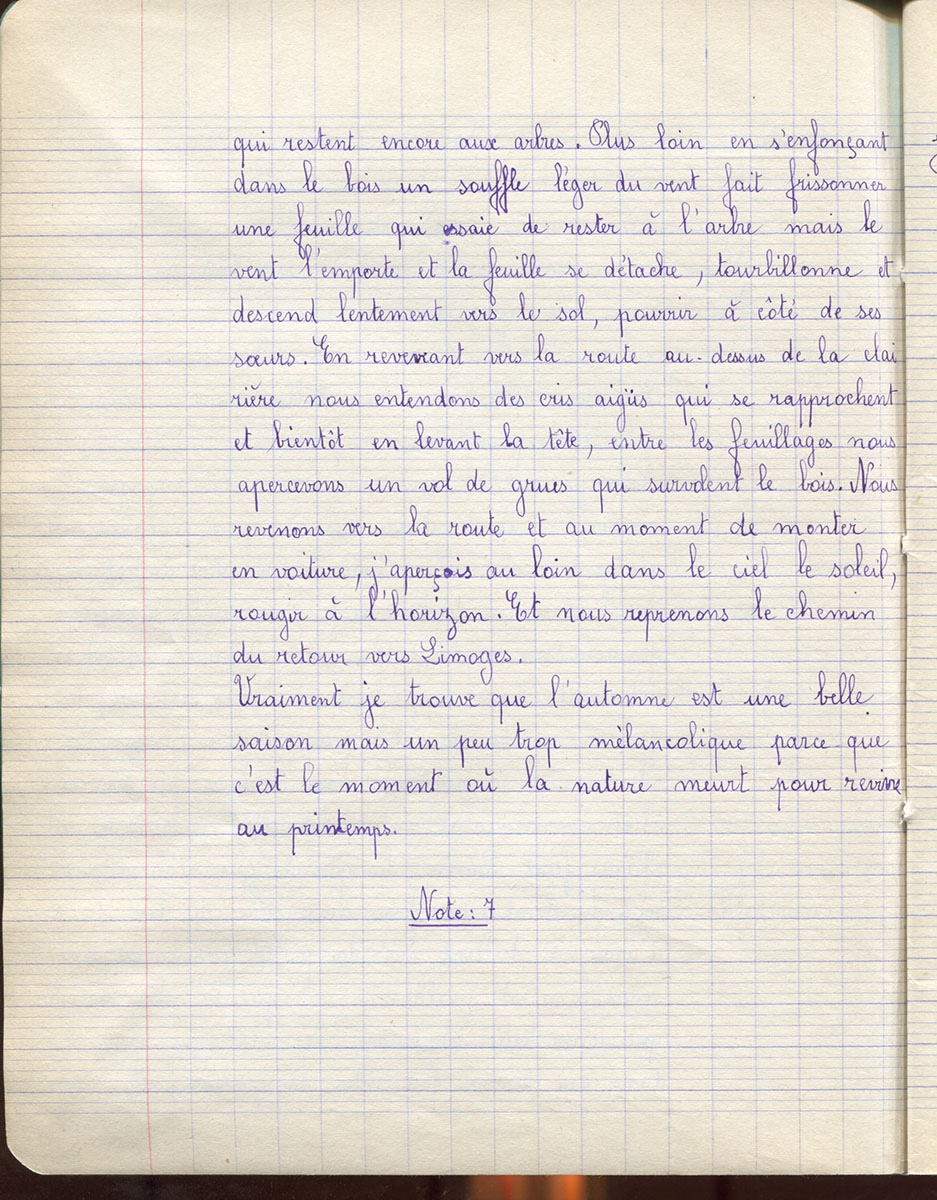 qui restent encore aux arbres. Plus loin en s'enfonçant
dans le bois un souffle léger du vent fait frissonner
une feuille qui essaie de rester à l'arbre mais le
vent l'emporte et la feuille se détache, tourbillonne et
descend lentement vers le sol, pourrir à côté de ses
sœurs. En revenant vers la route au-dessus de la clai
rière nous entendons des cris aigüs qui se rapprochent
et bientôt en levant la tête, entre les feuillages nous
apercevons un vol de grues qui survolent le bois. Nous
revenons vers la route et au moment de monter
en voiture, j'aperçois au loin dans le ciel le soleil,
rougir à l'horizon. Et nous reprenons le chemin
du retour vers Limoges.
Vraiment je trouve que l'automne est une belle
saison mais un peu trop mèlancolique parce que
c'est le moment où la nature meurt pour revivre
au printemps.
Note : 7